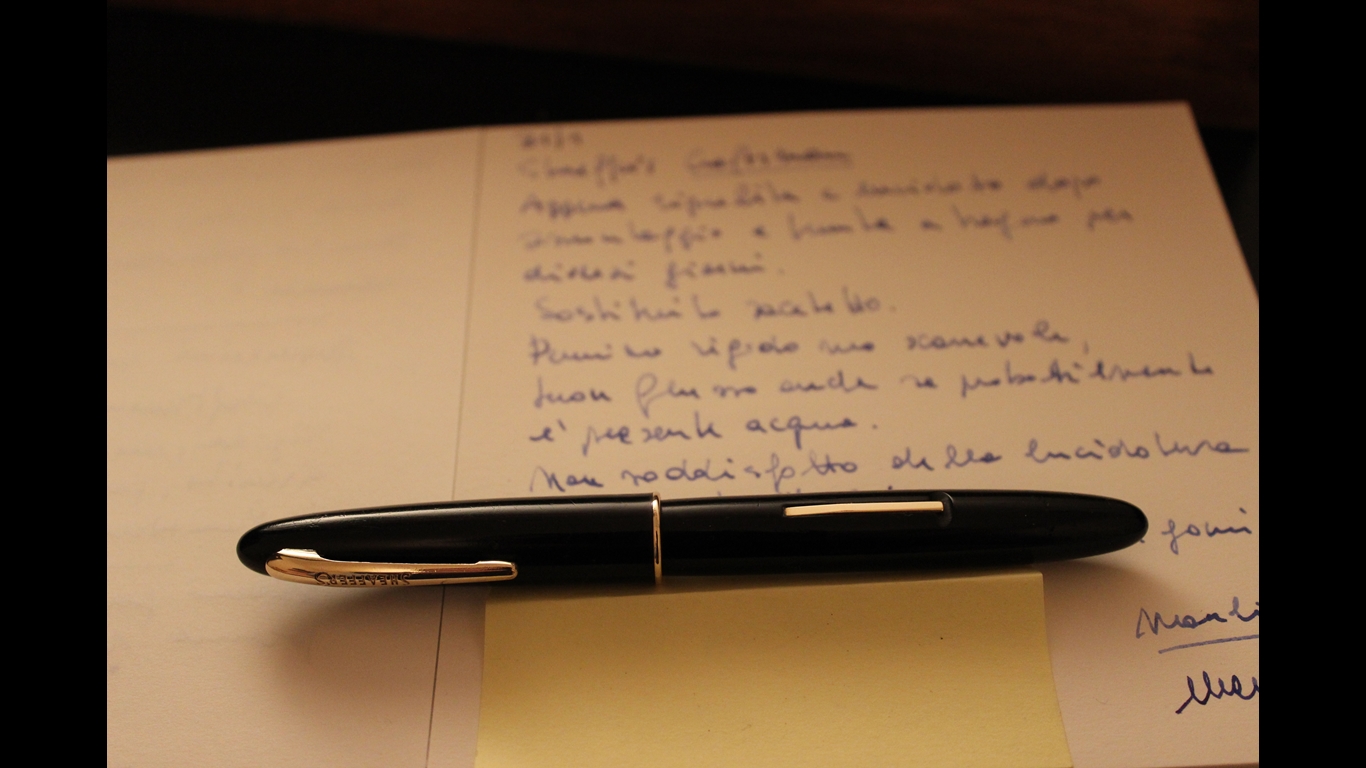 Sheaffer's Craftsman
Appena ripulita e lucidata dopo
smontaggio e tenuta a bagno per
diversi giorni.
Sostituito sacchetto.
Pennino rigido ma scorrevole,
buon flusso anche se probabilmente
e' presente acqua.
Non soddisfatto della lucidatura
gomi
SHEAFFER'S